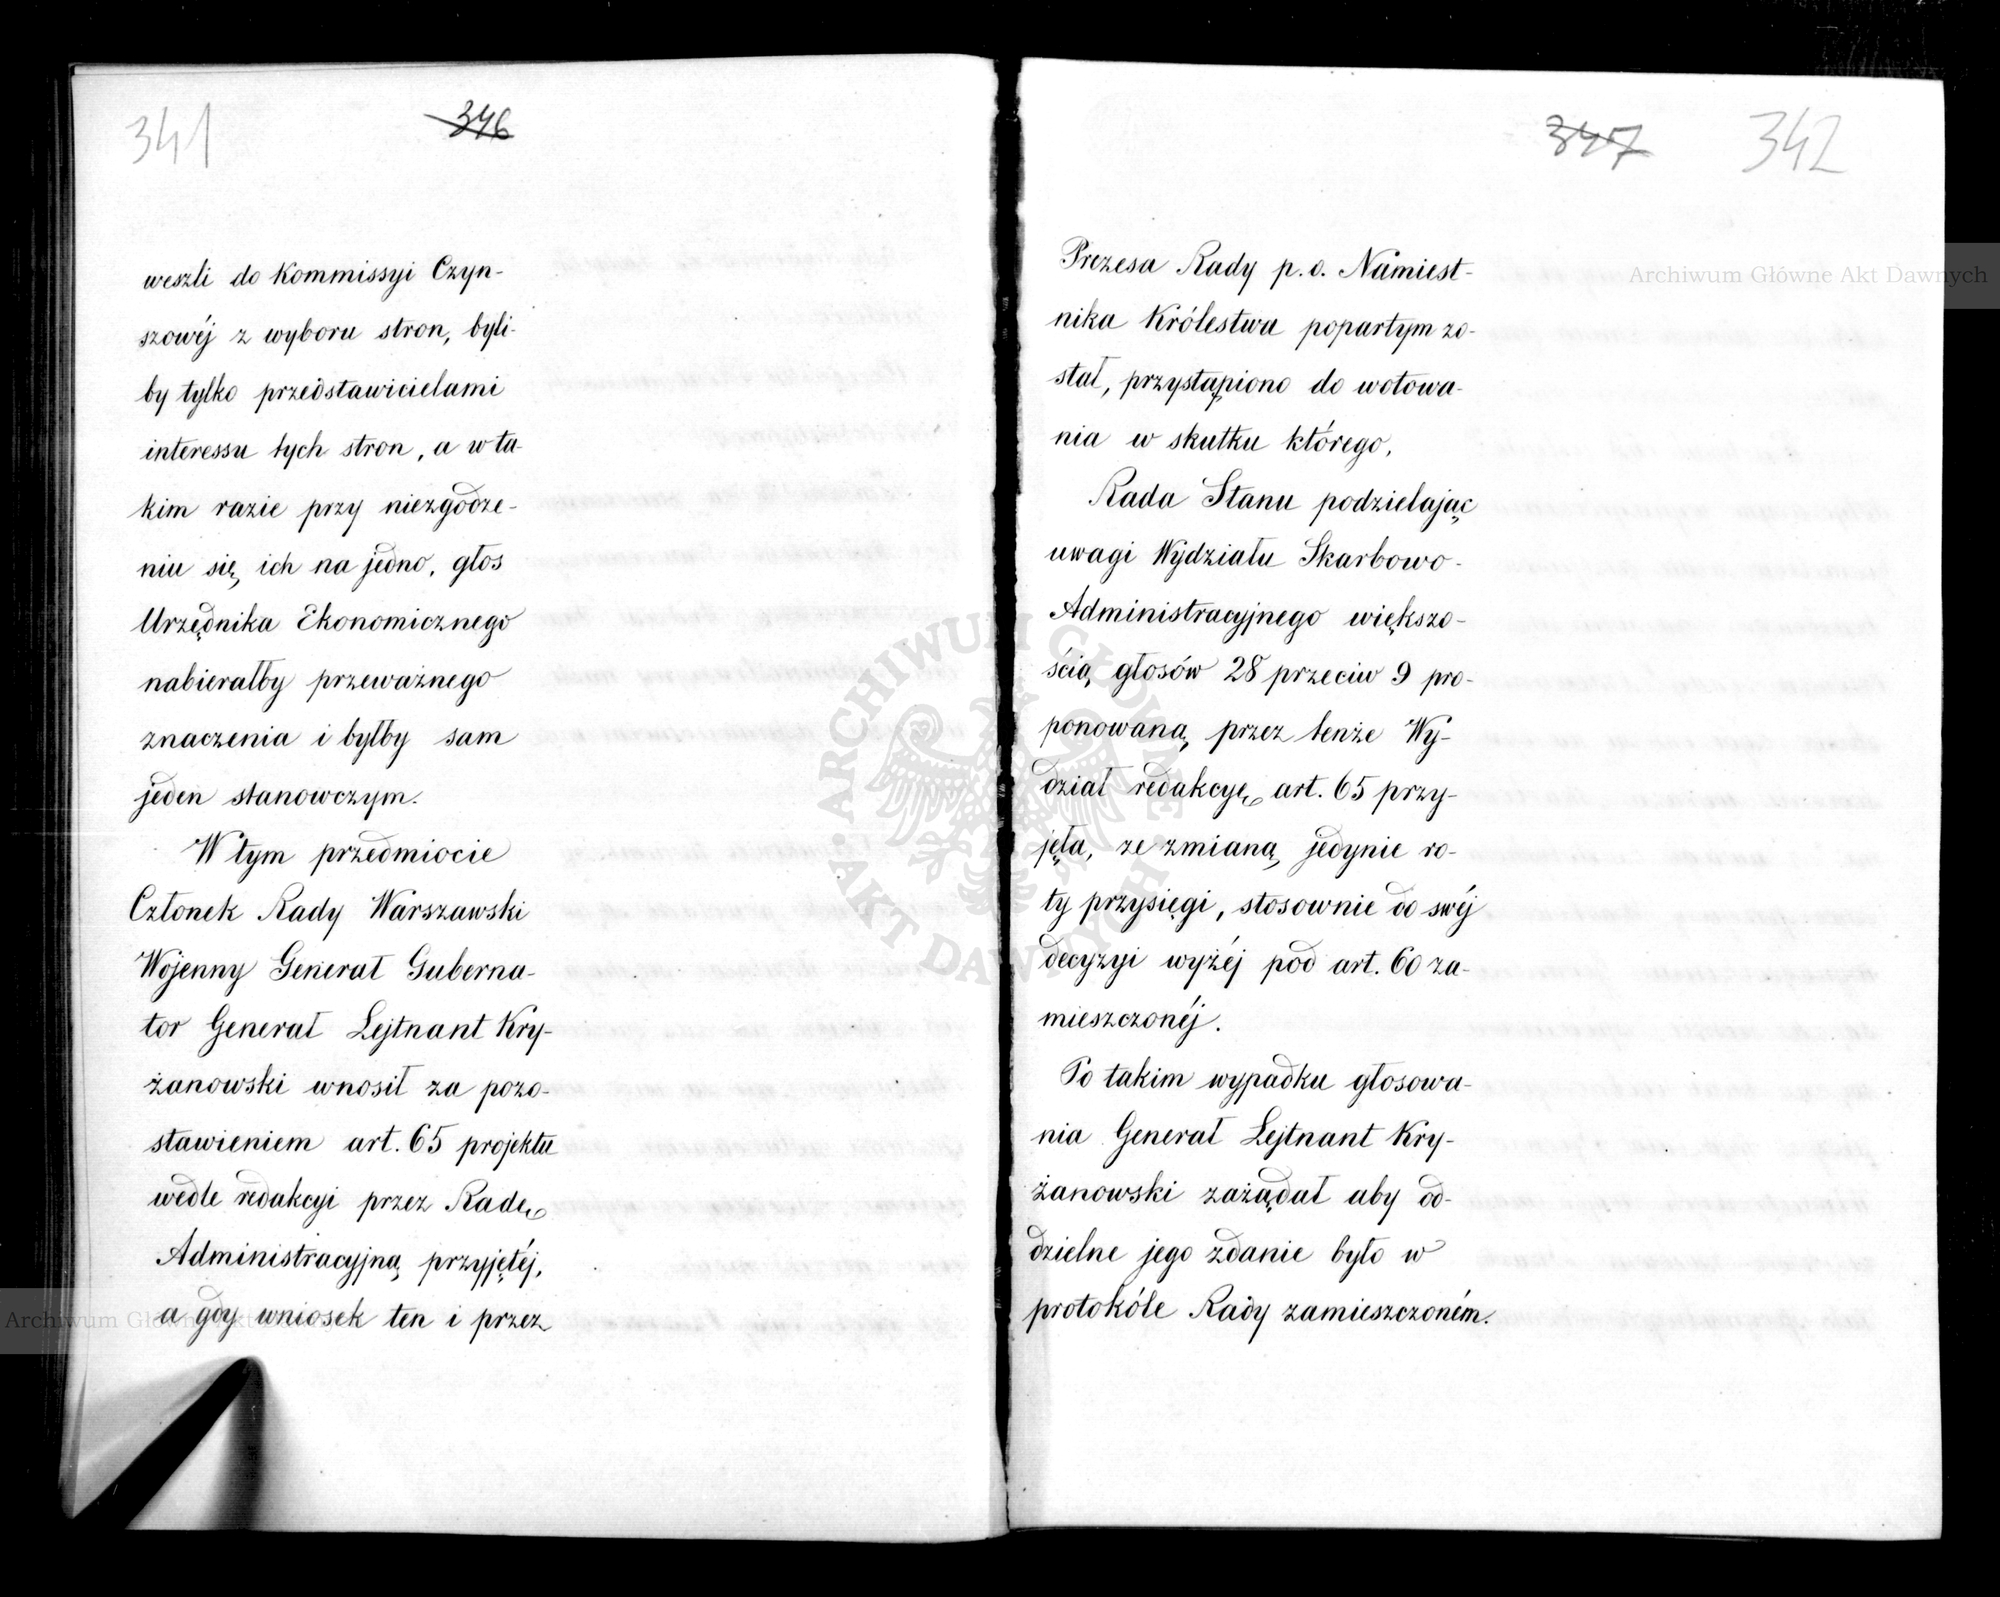 341
346
weszli do Kommissyi Czyn-
szowéj z wyboru stron, byli-
by tylko przedstawicielami
interessu tych stron, a w ta-
kim razie przy niezgodze-
niu się, ich na jedno, głos
Urzędnika Ekonomicznego
nabierałby przeważnego
znaczenia i byłby sam
jeden stanowczym.
W tym przedmiocie
Członek Rady Warszawski
Wojenny Generał Guberna-
tor Generał Lejtnant Kry-
żanowski wnosił za pozo-
stawieniem art. 65 projektu
wedle redakcyi przez Radę
Administracyjną przyjętéj,
a gdy wniosek ten i przez
347
342
Prezesa Rady p. o. Namiest-
nika Królestwa popartym zo-
stał, przystąpiono do wotowa-
nia w skutku którego,
Rada Stanu podzielając
uwagi Wydziału Skarbowo-
Administracyjnego większo-
ścią głosów 28 przeciw 9 pro-
ponowaną przez tenże Wy-
dział redakcyę art. 65 przy-
jęła, ze zmianą jedynie ro-
ty przysięgi, stosownie do swéj
decyzyi wyżéj pod art. 60 za-
mieszczonéj.
Po takim wypadku głosowa-
nia Generał Lejtnant Kry-
żanowski zażądał aby od-
dzielne jego zdanie było w
protokóle Rady zamieszczoném.
Archiwum Główne Akt Dawnych
Archiwum Główne Akt
ARCHIWUM GŁÓWNE
AKT DAWNYCH